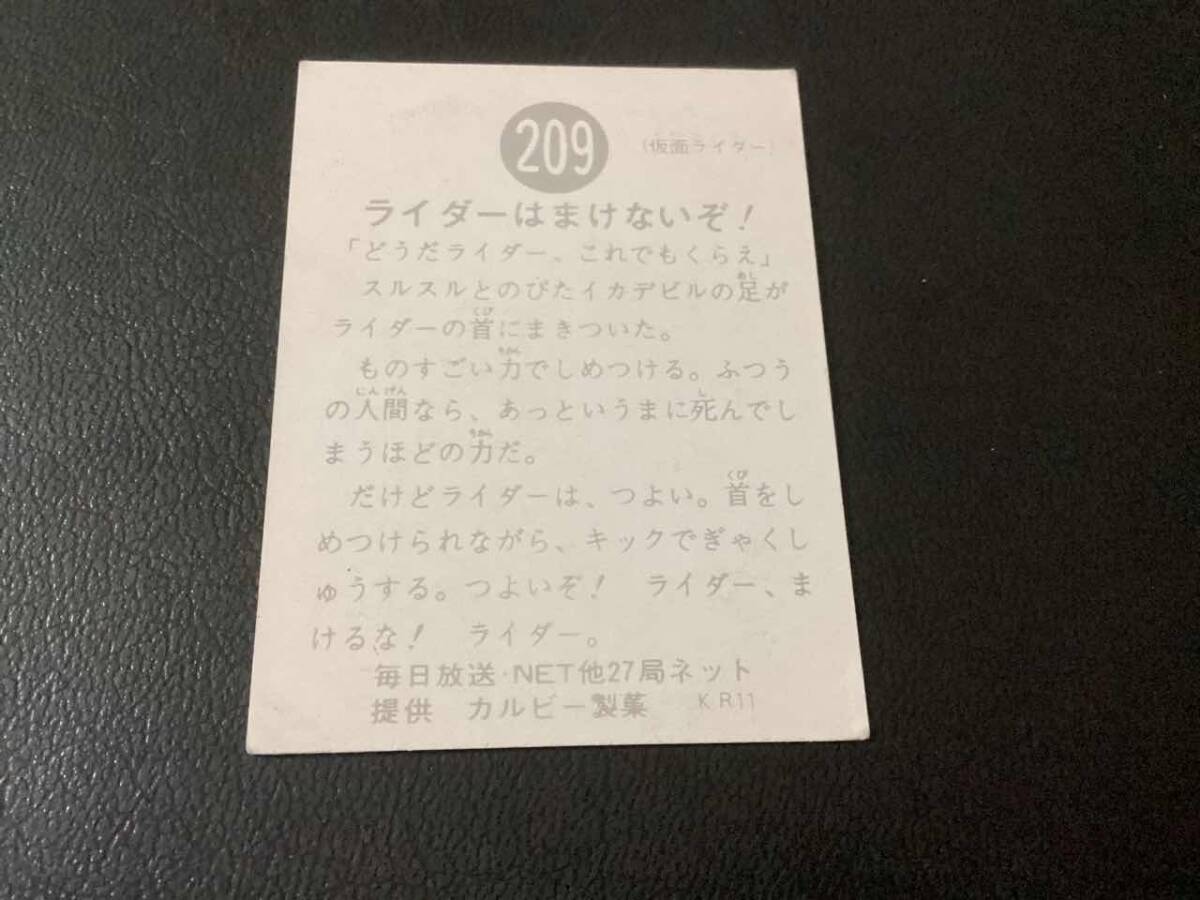 209
(仮面ライダー)
ライダーはまけないぞ!
「どうだライダー、これでもくらえ」
スルスルとのびたイカデビルの足が
ライダーの首にまきついた。
ものすごい力でしめつける。ふつう
の人間なら、あっというまに死んでし
まうほどの力だ。
だけどライダーは、つよい。首をし
めつけられながら、キックでぎゃくし
ゅうする。つよいぞ! ライダー、ま
けるな! ライダー。
毎日放送・NET他27局ネット
提供 カルビー製菓 KR11